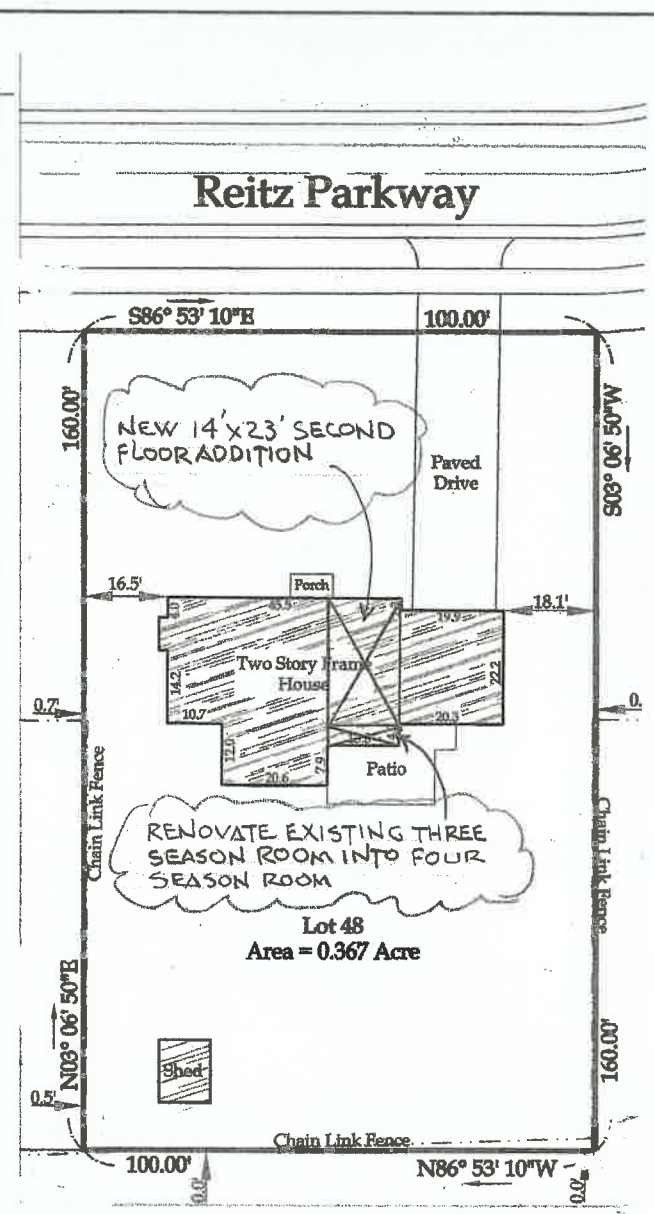 Reitz Parkway
S86° 53' 10"E
100.00'
160.00'
S03° 06' 50"W
NEW 14'x23' SECOND
FLOOR ADDITION
Paved
Drive
16.5'
Porch
4.0
45.5
19.9
18.1'
Two Story Frame
House
14.2
22.2
0.7'
10.7
20.3
0.
12.0
7.9
20.6
Patio
Chain Link Fence
Chain Link Fence
RENOVATE EXISTING THREE
SEASON ROOM INTO FOUR
SEASON ROOM
Lot 48
Area = 0.367 Acre
N03° 06' 50"E
160.00'
Shed
0.5'
Chain Link Fence
100.00'
N86° 53' 10"W
0.0'
0.0'